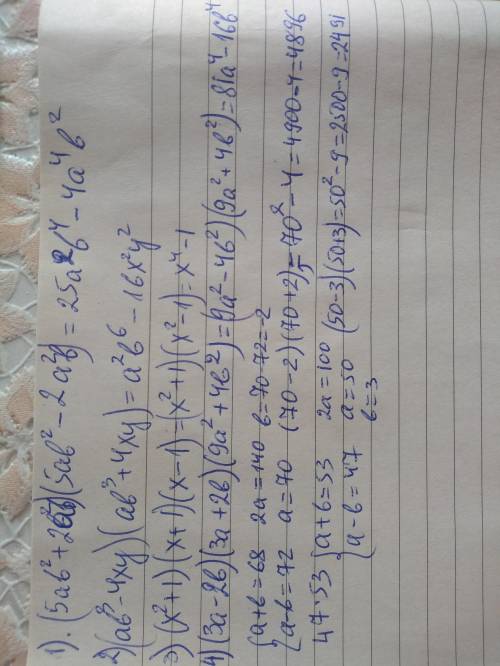 1). (5ab²+2a²b)(5ab²-2a²b)=25a²b⁴-4a⁴b²
2)(ab³-4xy)(ab³+4xy)=a²b⁶-16x²y²
3)(x²+1)(x+1)(x-1)=(x²+1)(x²-1)=x⁴-1
4)(3a-2b)(3a+2b)(9a²+4b²)=(9a²-4b²)(9a²+4b²)=81a⁴-16b⁴
{a+b=68 2a=140 b=70-72=-2
{a-b=72 a=70 (70-2)(70+2)=70²-4=4900-4=4896
47·53 {a+b=53 2a=100
{a-b=47 a=50 (50-3)(50+3)=50²-9=2500-9=2491
b=3